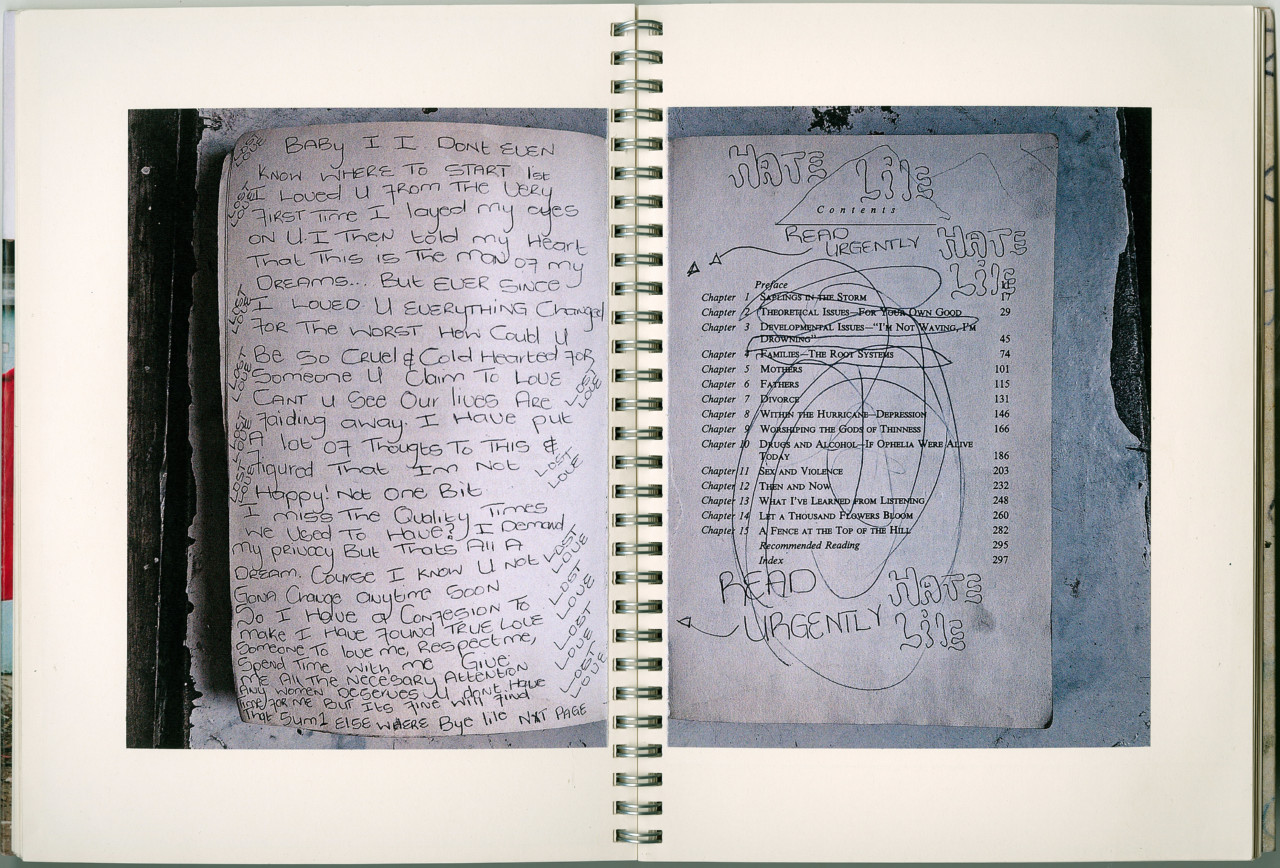 BABY I I DONT EVEN
KNOW WHERE TO START 1st
I LOVED U FROM THE VERY
FIRST TIME I layed my eyes
ON U. I THEN told my Heart
THAT THIS IS THE MAN OF MY
DREAMS... BUT EVER SINCE
I LOVED U EVERYTHING Changed
FOR THE WORST HOW Could U
Be So Cruel & Cold Hearted FOR
Someone U Claim To LOVE
CANT U See Our lives Are
Faiding away. I Have put
A lot OF Thougts To THIS &
Figured That Im Not
Happy! Not One Bit
I miss The Quality Times
We Used To Have? I Demand
my privacy But Thats All A
DREAM. Course I Know U Not
Gona Change anytime Soon
So I Have a Confesion To
make I Have Found TRUE LOVE
Someone To love me, Respect me,
Spend Time with me Give
Me All The Necesary Attention
Any women Deserves U dont Have
Time FOR ME But Its Fine Will Find
That Sum1 ELSE WHERE Bye lile NXT PAGE
LOST LOVE
LOST LOVE
LOST LOVE
LOST LOVE
LOST LOVE
LOST LOVE
LOST LOVE
LOST LOVE
LOST LOVE
LOST LOVE
LOST LOVE
LOST LOVE
HATE LILE
Contents
READ URGENTLY
HATE LILE
Preface
Chapter 1 SAPLINGS IN THE STORM 17
Chapter 2 THEORETICAL ISSUES—FOR YOUR OWN GOOD 29
Chapter 3 DEVELOPMENTAL ISSUES—"I'M NOT WAVING, I'M
DROWNING" 45
Chapter 4 FAMILIES—THE ROOT SYSTEMS 74
Chapter 5 MOTHERS 101
Chapter 6 FATHERS 115
Chapter 7 DIVORCE 131
Chapter 8 WITHIN THE HURRICANE—DEPRESSION 146
Chapter 9 WORSHIPING THE GODS OF THINNESS 166
Chapter 10 DRUGS AND ALCOHOL—IF OPHELIA WERE ALIVE
TODAY 186
Chapter 11 SEX AND VIOLENCE 203
Chapter 12 THEN AND NOW 232
Chapter 13 WHAT I'VE LEARNED FROM LISTENING 248
Chapter 14 LET A THOUSAND FLOWERS BLOOM 260
Chapter 15 A FENCE AT THE TOP OF THE HILL 282
Recommended Reading 295
Index 297
READ
URGENTLY
HATE
LILE